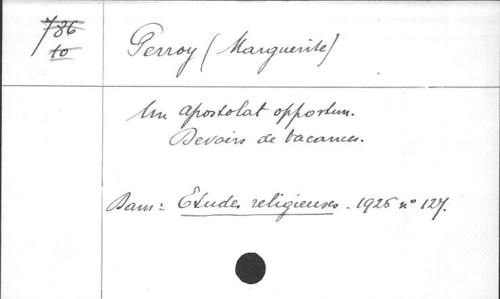 786
10
Perroy (Marguerite)
Un apostolat opportun.
Devoirs de vacances.
Dans: Etudes religieuses. 1925 n° 127.